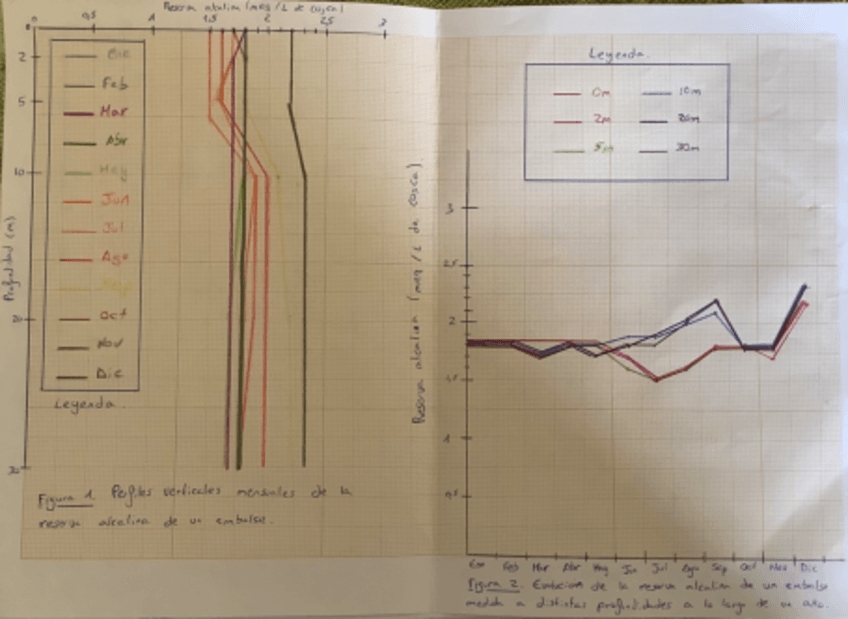 Reserva alcalina (meq / L de CO3Ca)
0 0,5 1 1,5 2 2,5 3
2
5
10
20
30
Profundidad (m)
Ene
Feb
Mar
Abr
May
Jun
Jul
Ago
Sep
Oct
Nov
Dic
Leyenda.
Figura 1. Perfiles verticales mensuales de la
reserva alcalina de un embalse.
Leyenda.
0m 10m
2m 20m
5m 30m
Reserva alcalina (meq / L de CO3Ca)
3
2,5
2
1,5
1
0,5
Ene Feb Mar Abr May Jun Jul Ago Sep Oct Nov Dic
Figura 2. Evolución de la reserva alcalina de un embalse
medida a distintas profundidades a lo largo de un año.